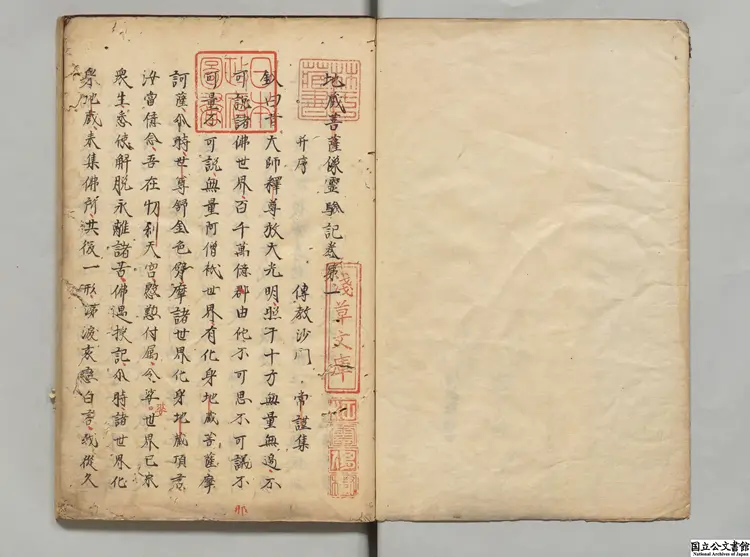 地蔵菩薩像靈驗記卷第一
并序 傳教沙門 常謹集
大師釋尊放大光明照于十方無量無邊不
可說諸佛世界百千萬億那由他不可思不可議不
可量不可說無量阿僧祇世界有化身地蔵菩薩摩
訶薩尓時世尊舒金色臂摩諸世界化身地蔵頂言
汝當憶念吾在忉利天宮慇懃付属令娑婆世界已來
衆生悉使解脱永離諸苦佛遇授記尓時諸世界化
身地蔵來集佛所共復一形涕淚哀戀白言我從久
日本政府圖書
林氏蔵書
淺草文庫
江雲渭樹
国立公文書館
National Archives of Japan